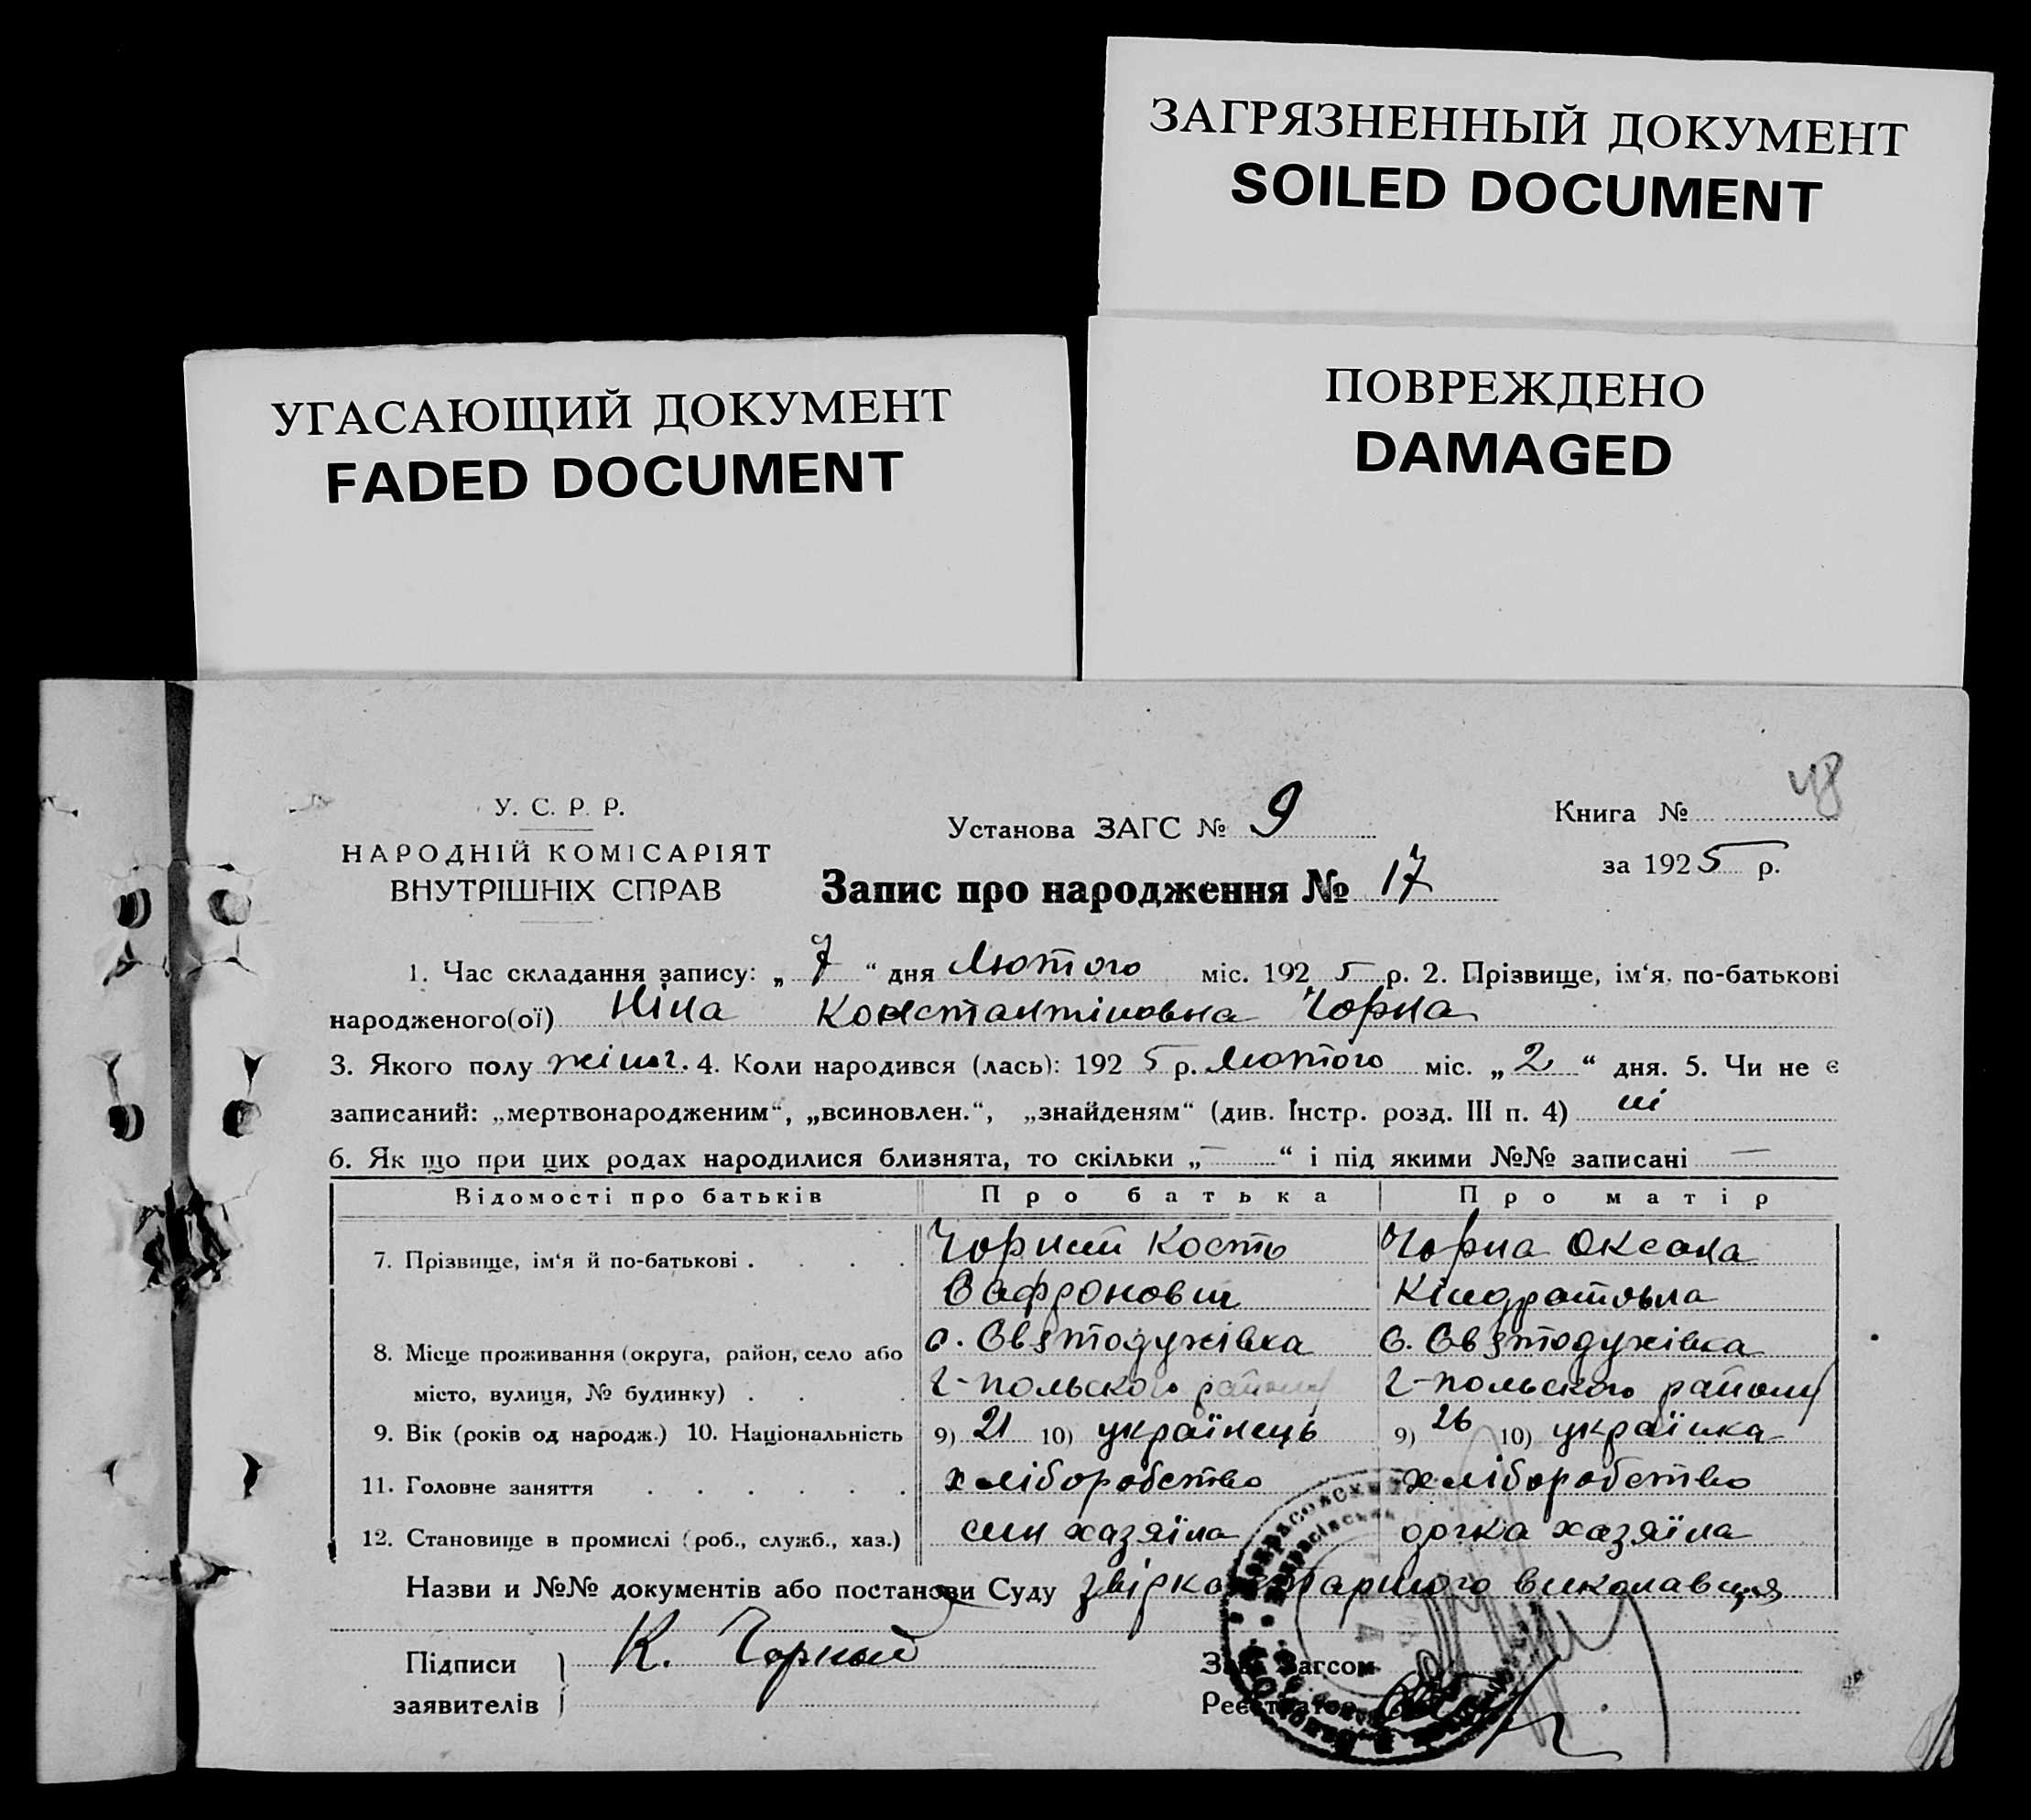 ЗАГРЯЗНЕННЫЙ ДОКУМЕНТ
SOILED DOCUMENT
УГАСАЮЩИЙ ДОКУМЕНТ
FADED DOCUMENT
ПОВРЕЖДЕНО
DAMAGED
48
У. С. Р. Р.
НАРОДНІЙ КОМІСАРІЯТ
ВНУТРІШНІХ СПРАВ
Установа ЗАГС № 9
Запис про народження № 17
Книга №
за 1925 р.
1. Час складання запису: „ 7 “ дня Лютого міс. 192 5 р. 2. Прізвище, ім‘я, по-батькові
народженого(ої) Ніна Константіновна Чорна
3. Якого полу жіноч. 4. Коли народився (лась): 192 5 р. Лютого міс. „ 2 “ дня. 5. Чи не є
записаний: „мертвонародженим“, „всиновлен.“, „знайденям“ (див. Інстр. розд. III п. 4) ні
6. Як що при цих родах народилися близнята, то скільки „ — “ і під якими №№ записані —
Відомості про батьків Про батька Про матір
7. Прізвище, ім‘я й по-батькові . . . . Чорний Кость Чорна Оксана
Сафронович Кіндратовна
8. Місце проживання (округа, район, село або с. Святодухівка с. Святодухівка
місто, вулиця, № будинку) . . . Г-польского району Г-польского району
9. Вік (років од народж.) 10. Національність 9) 21 10) українець 9) 26 10) українка
11. Головне заняття . . . . . . хліборобство хліборобство
12. Становище в промислі (роб., служб., хаз.) син хазяїна дочка хазяїна
Назви и №№ документів або постанови Суду звірка старшого виконавця
Підписи К. Чорный Зав. Загсом
заявителів Реєстратор